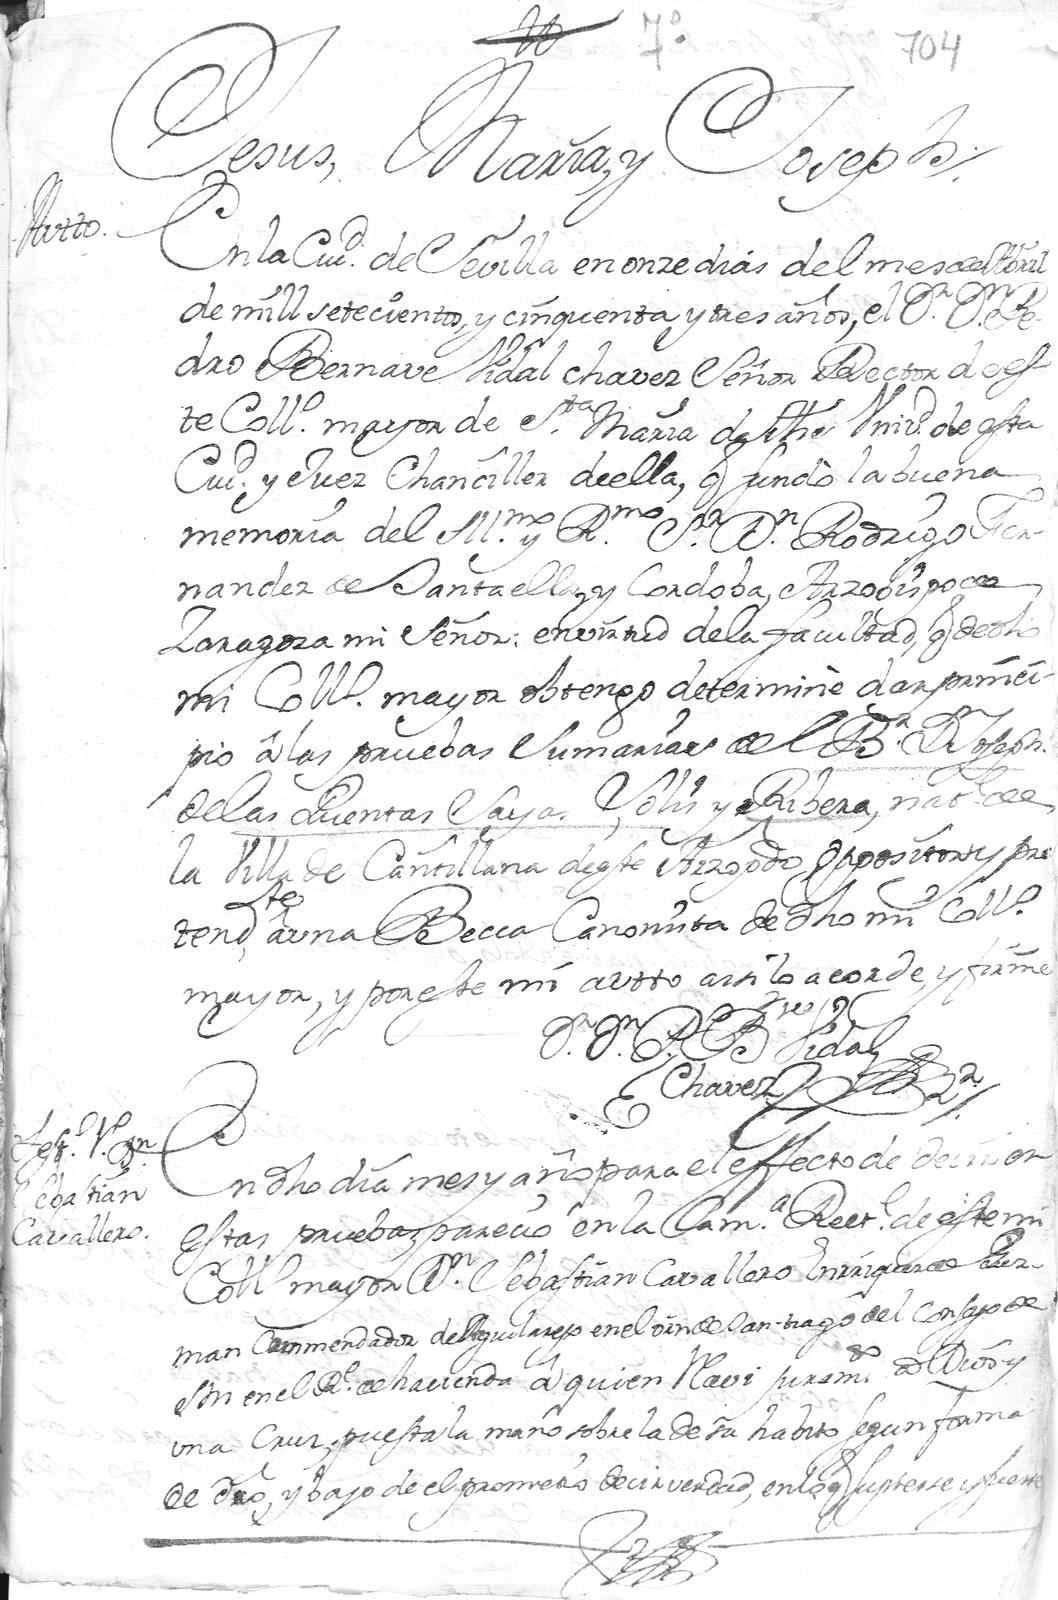 7º 704
Jesus, Maria, y Joseph.
Autto.
En la Ciud. de Sevilla en onze dias del mes de Abril
de mill setecientos, y cinquenta y tres años, el Dr. Dn. Pe-
dro Bernave Vidal chavez Señor Rector de es
te Collo. mayor de Sta. Maria de Jhs. Univd. de esta
Ciud. y Juez Chanciller de ella, q fundò la buena
memoria del Illmo. y Rmo. Sr. Dn. Rodrigo Fer-
nandez de Santaella, y Cordoba, Arzobispo de
Zaragoza mi Señor: en virtud de la facultad, q de dho
mi Collo. mayor obtengo determinè dar princi-
pio â las pruebas Sumarias de el Br. Dn. Joseph
de las Quentas Zayas, Solis y Ribera, natl. de
la Villa de Cantillana de este Arzopdo, Opositor y pre
tendte, a una Becca Canonista de dho mi Collo.
mayor, y por este mi autto assi lo acorde, y firme
Dr. Dn. Po. Bve Vidal
Chavez
Rr.
Testo. 1º Dn.
Sebastian
Cavallero.
En dho dia mes y año para el effecto de
estas pruebas, pareciò en la Cama. Rectl. de este mi
Collo mayor Dn. Sebastian Cavallero Enriquez de Guz-
man Commendador de Aguilarejo en el orn de San-tiago del Consejo de
SM en el Rl. de hacienda â quien Recivi juramto â Dios y
una Cruz, puesta la mano sobre la de su habito segun forma
de dro, y bajo de el prometiò decir verdad, en lo q supiesse y fuere